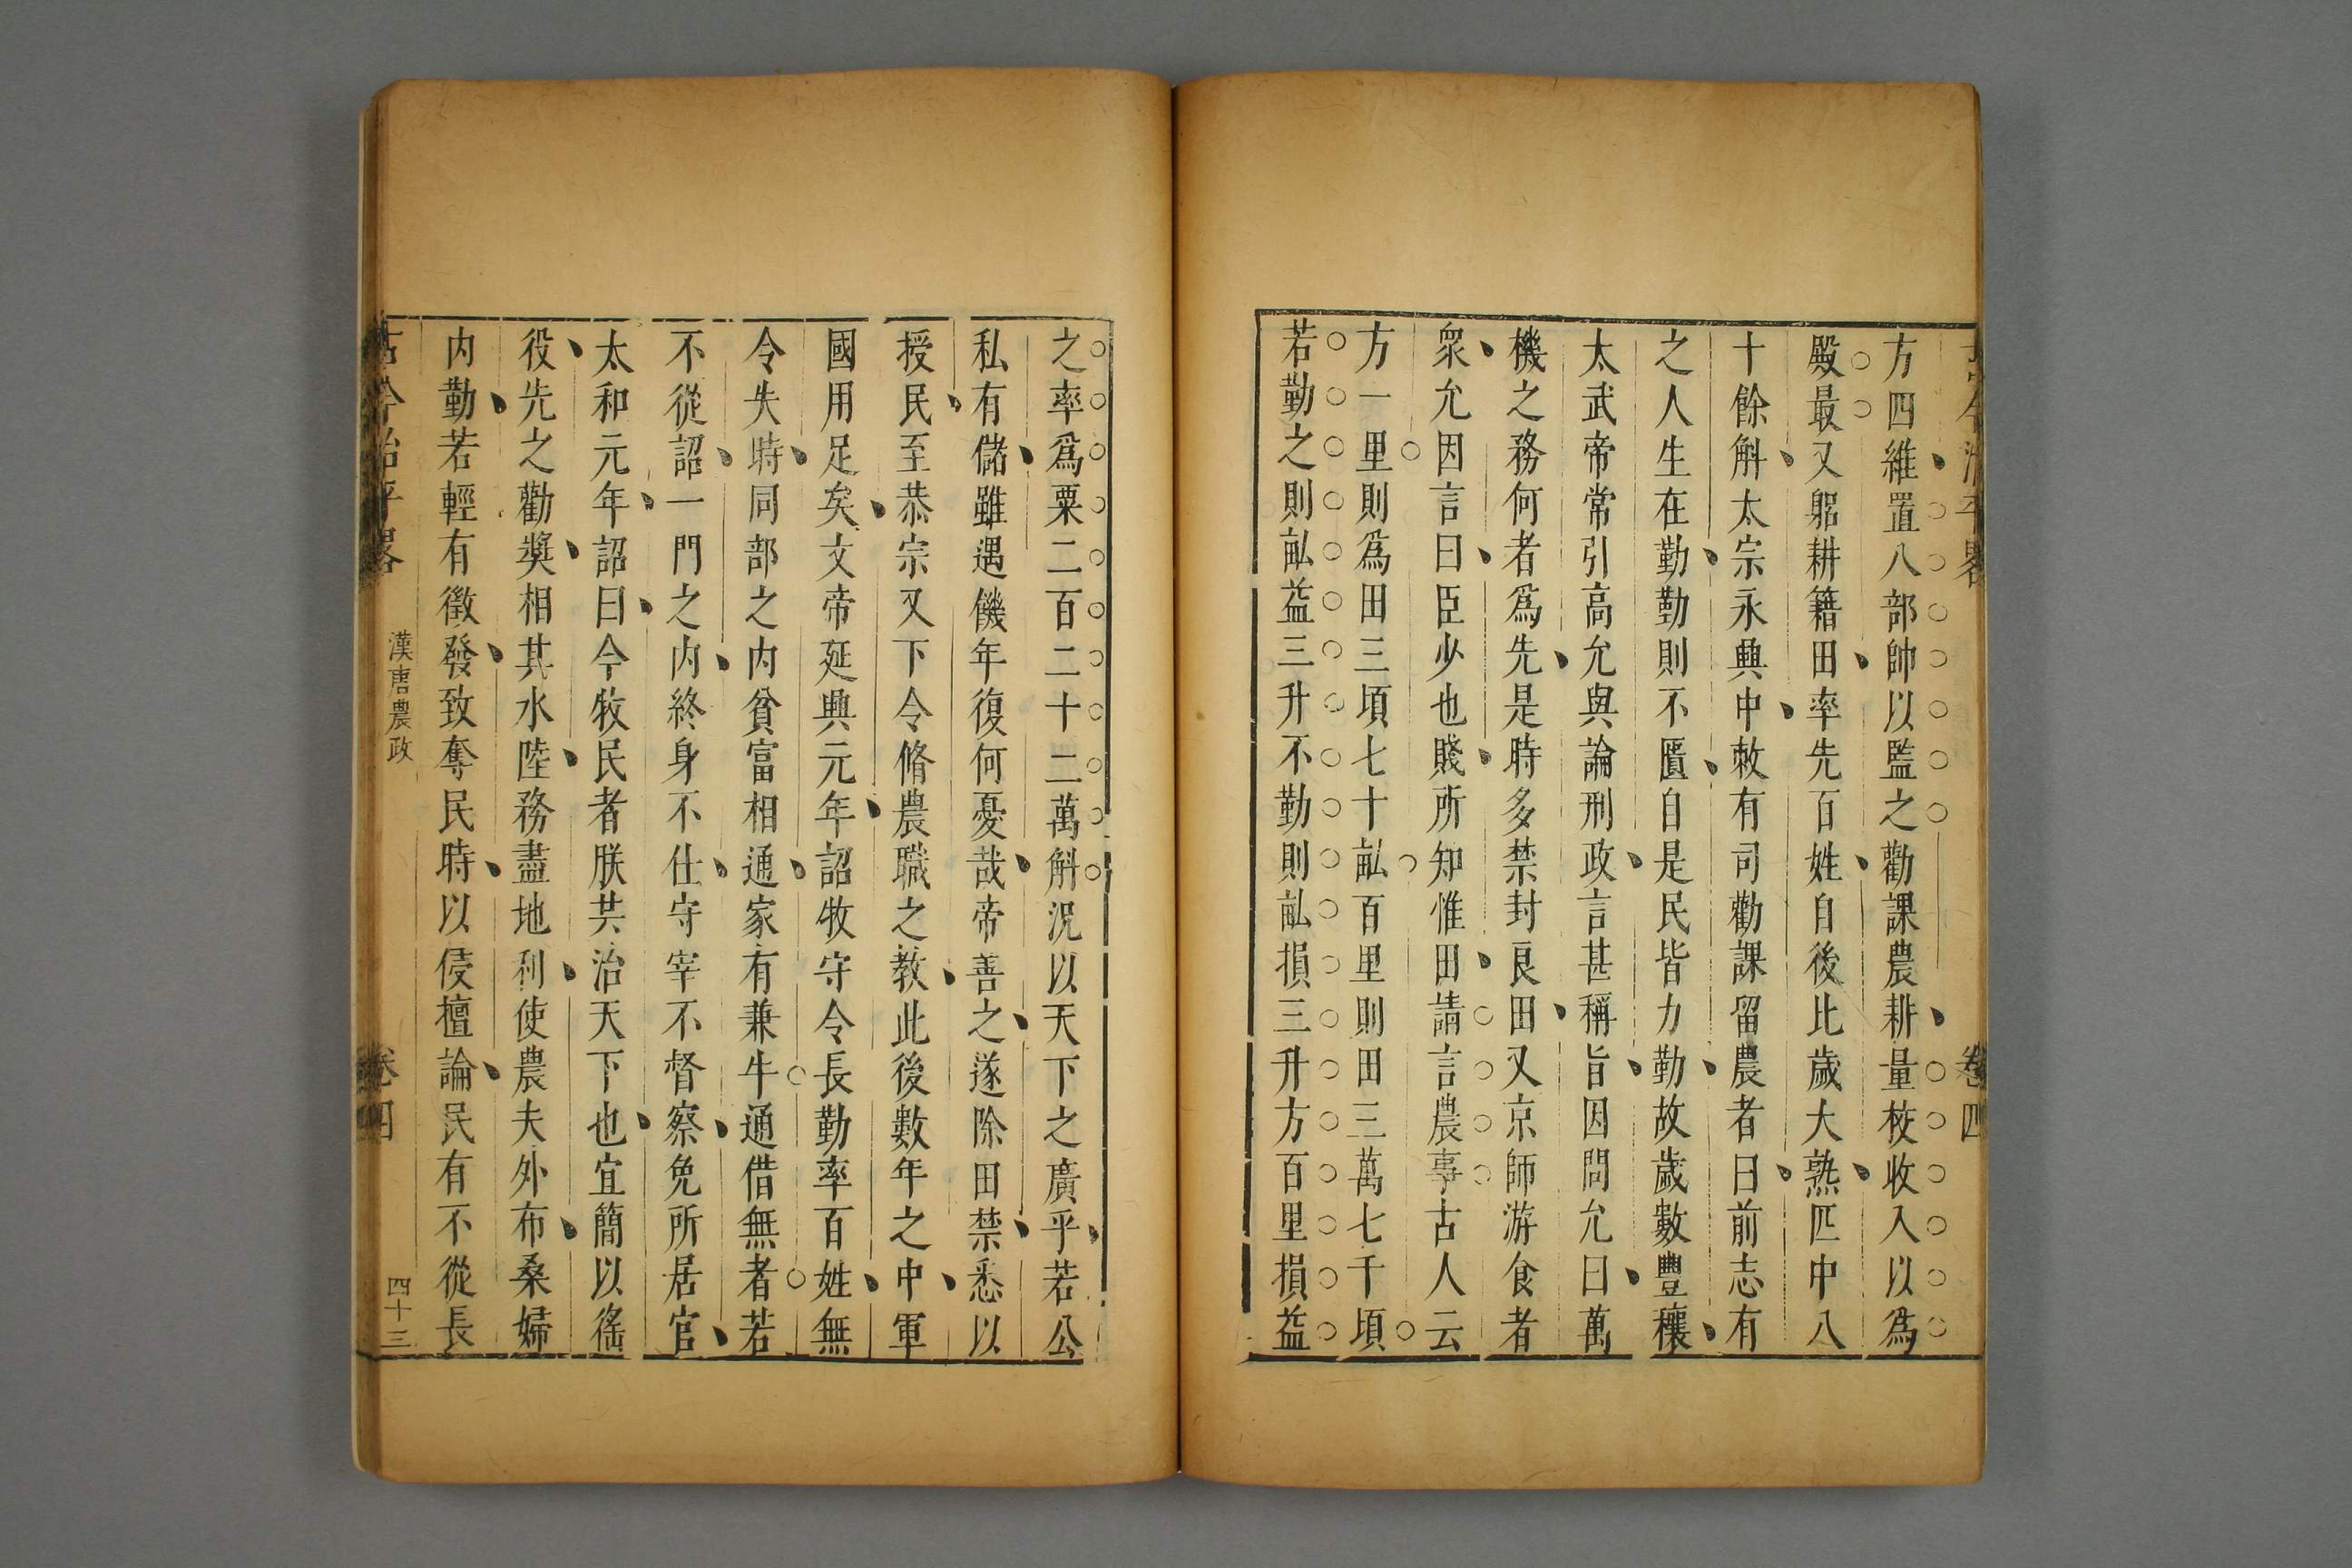 古今治平畧 卷四
方四維置八部帥以監之勸課農耕量校收入以爲
殿最又躬耕籍田率先百姓自後比歲大熟匹中八
十餘斛太宗永興中敕有司勸課留農者曰前志有
之人生在勤勤則不匱自是民皆力勤故歲數豐穰
太武帝常引高允與論刑政言甚稱旨因問允曰萬
機之務何者爲先是時多禁封良田又京師游食者
衆允因言曰臣少也賤所知惟田請言農事古人云
方一里則爲田三頃七十畝百里則田三萬七千頃
若勤之則畝益三升不勤則畝損三升方百里損益
之率爲粟二百二十二萬斛況以天下之廣乎若公
私有儲雖遇饑年復何憂哉帝善之遂除田禁悉以
授民至恭宗又下令脩農職之教此後數年之中軍
國用足矣文帝延興元年詔牧守令長勤率百姓無
令失時同部之內貧富相通家有兼牛通借無者若
不從詔一門之內終身不仕守宰不督察免所居官
太和元年詔曰今牧民者朕共治天下也宜簡以徭
役先之勸獎相其水陸務盡地利使農夫外布桑婦
內勤若輕有徵發致奪民時以侵擅論民有不從長
古今治平畧 漢唐農政 卷四 四十三